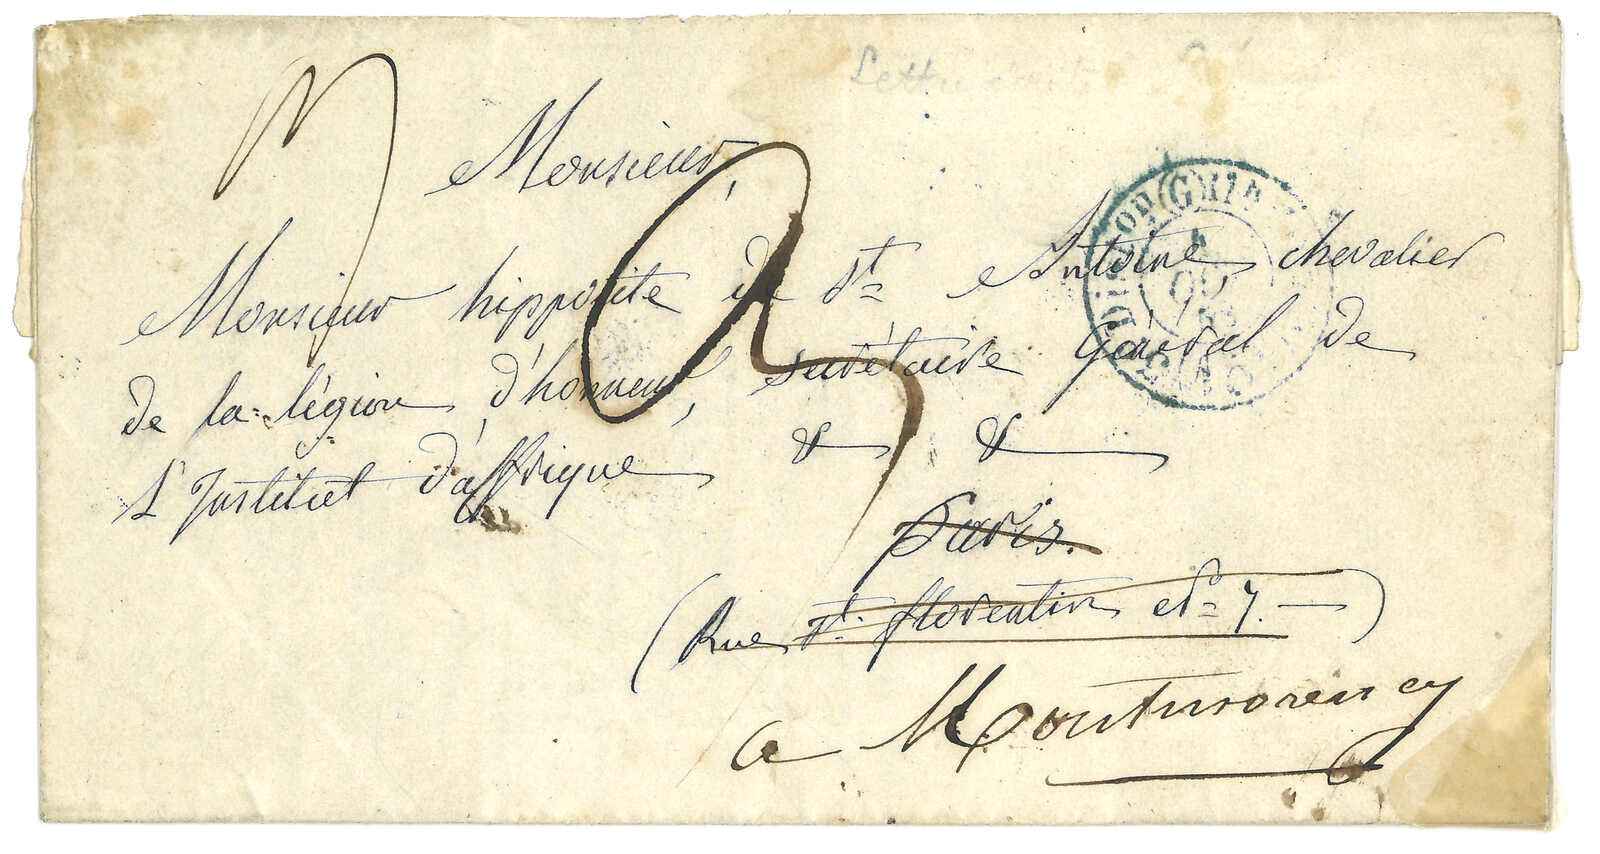 Monsieur,
Monsieur hippolite de St= Antoine chevalier
de la légion d'honneur, secrétaire Général de
L'Institut d'affrique & &
Paris.
(Rue St. florentin 7.)
a Montmorency